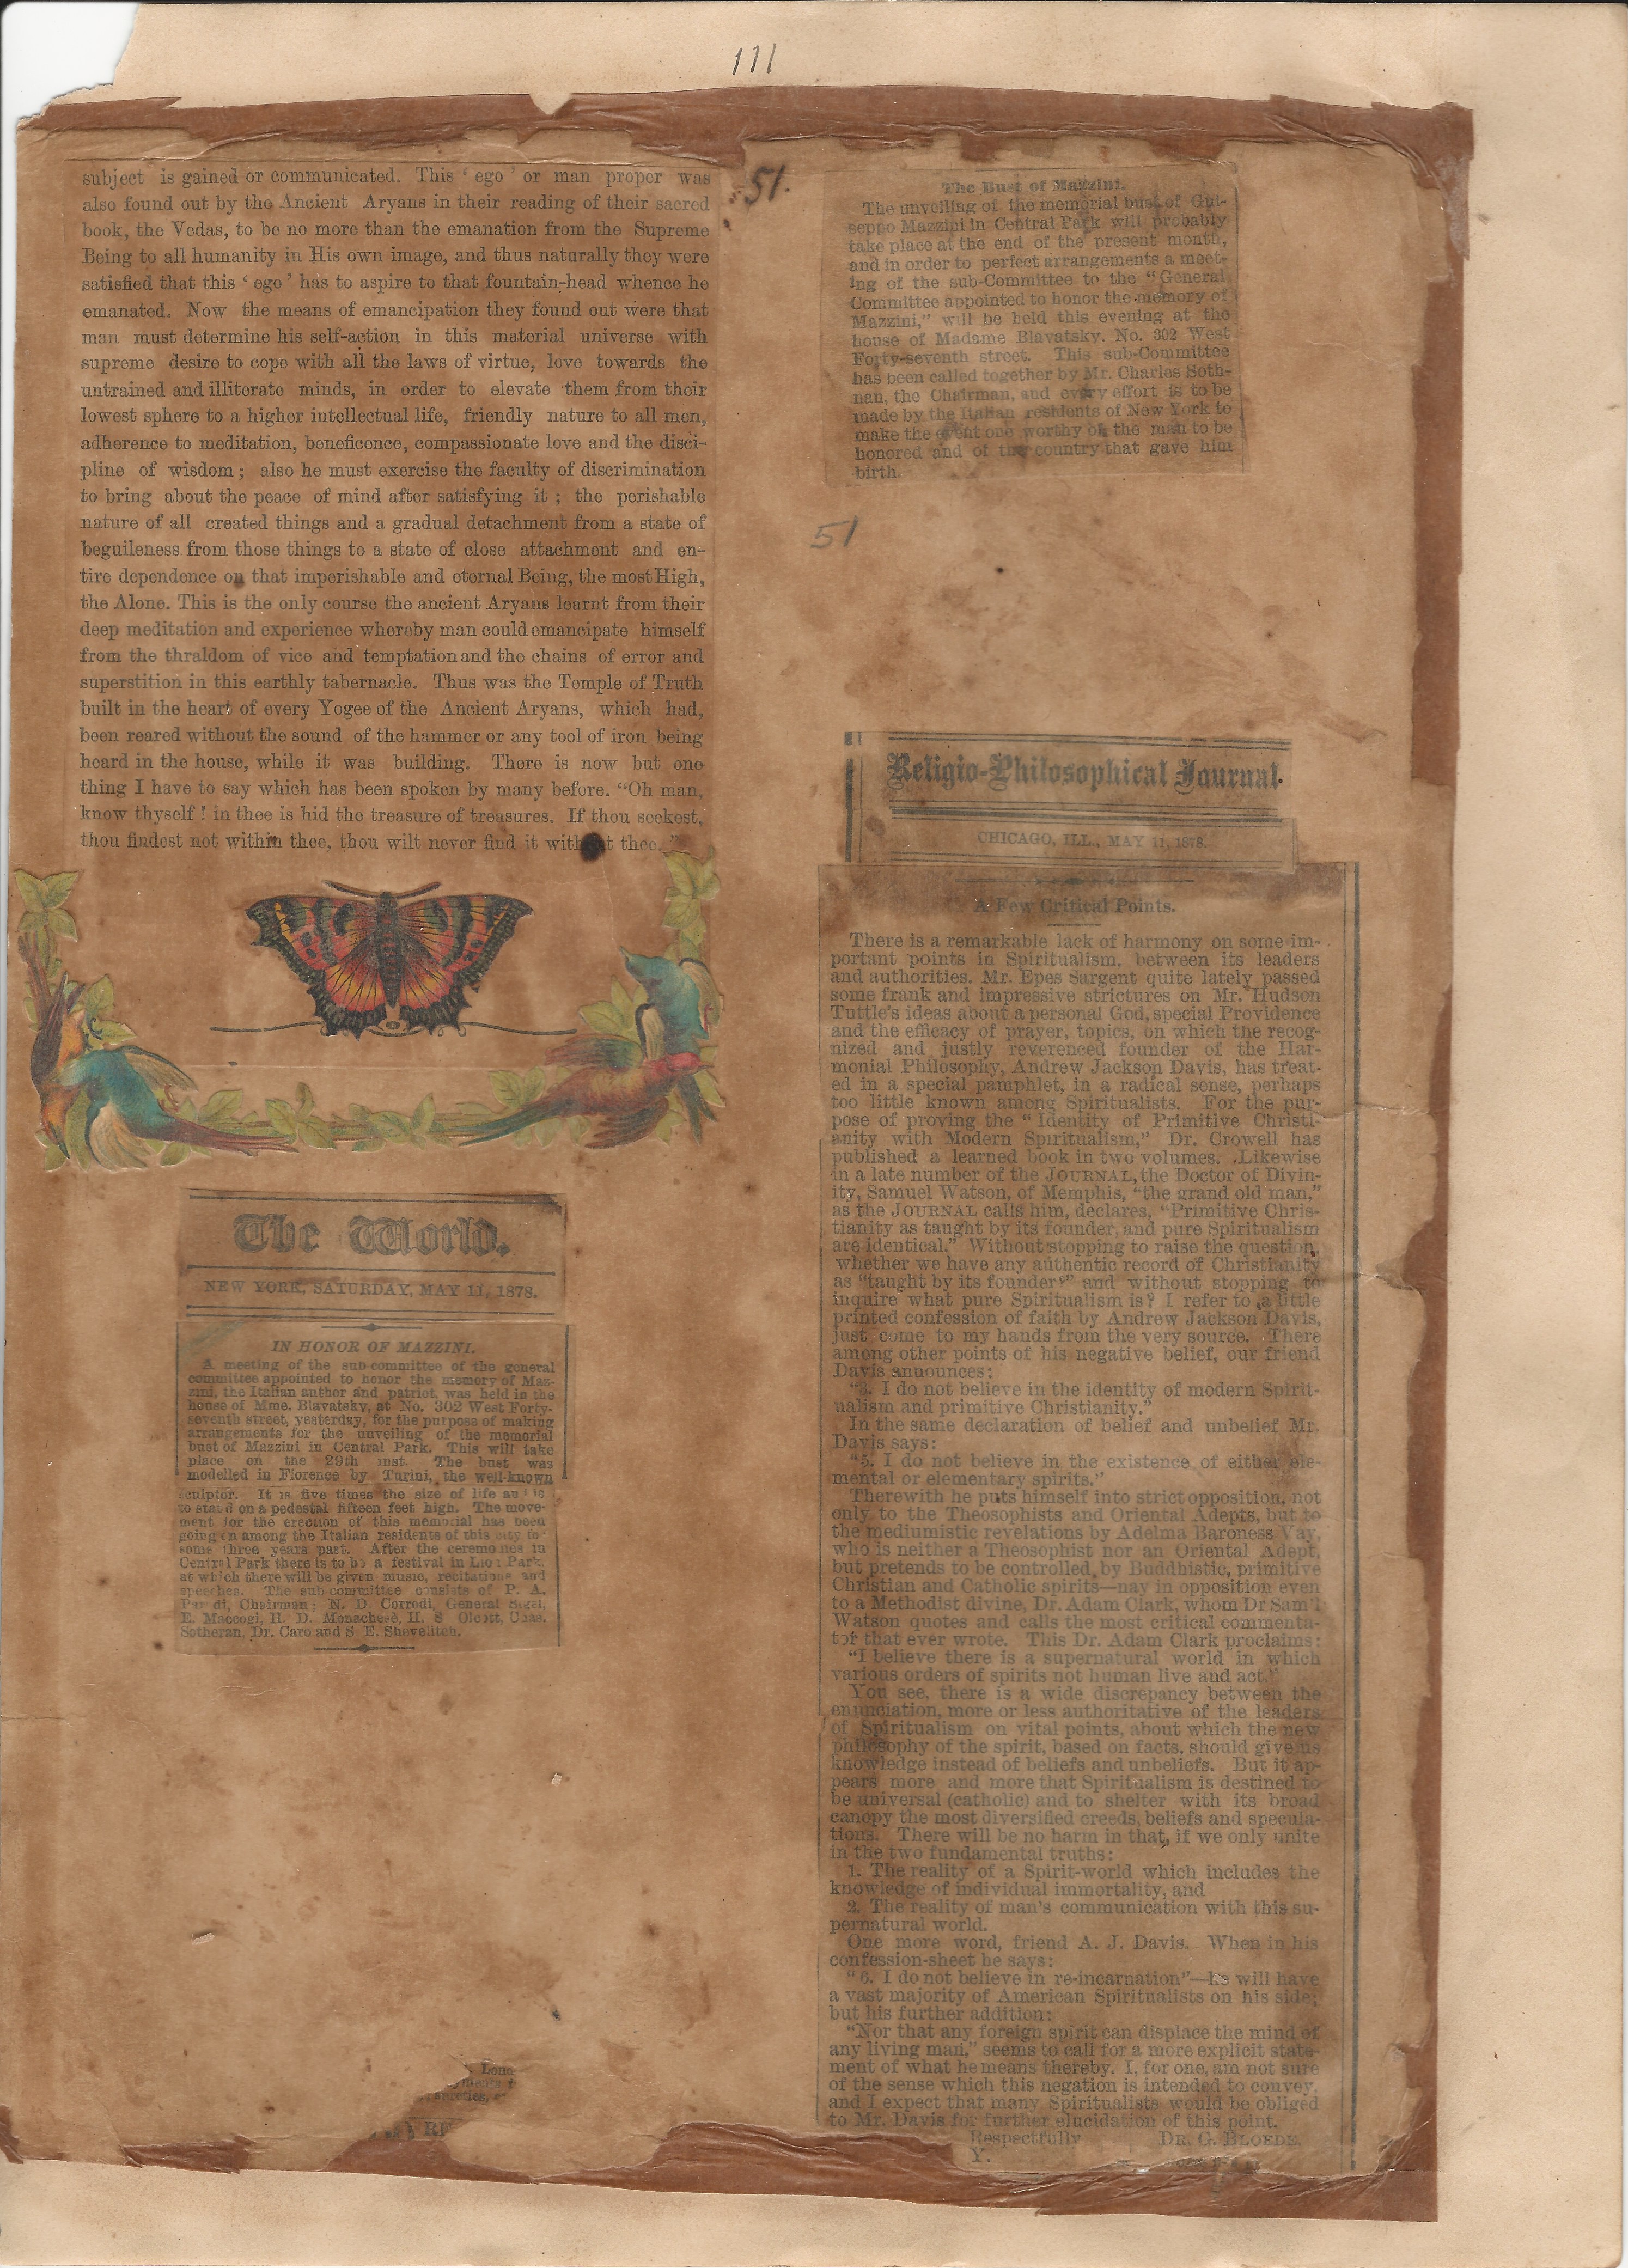 111
subject is gained or communicated. This ‘ ego ’ or man proper was
also found out by the Ancient Aryans in their reading of their sacred
book, the Vedas, to be no more than the emanation from the Supreme
Being to all humanity in His own image, and thus naturally they were
satisfied that this ‘ ego ’ has to aspire to that fountain-head whence he
emanated. Now the means of emancipation they found out were that
man must determine his self-action in this material universe with
supreme desire to cope with all the laws of virtue, love towards the
untrained and illiterate minds, in order to elevate them from their
lowest sphere to a higher intellectual life, friendly nature to all men,
adherence to meditation, beneficence, compassionate love and the disci-
pline of wisdom ; also he must exercise the faculty of discrimination
to bring about the peace of mind after satisfying it ; the perishable
nature of all created things and a gradual detachment from a state of
beguileness from those things to a state of close attachment and en-
tire dependence on that imperishable and eternal Being, the most High,
the Alone. This is the only course the ancient Aryans learnt from their
deep meditation and experience whereby man could emancipate himself
from the thraldom of vice and temptation and the chains of error and
superstition in this earthly tabernacle. Thus was the Temple of Truth
built in the heart of every Yogee of the Ancient Aryans, which had,
been reared without the sound of the hammer or any tool of iron being
heard in the house, while it was building. There is now but one
thing I have to say which has been spoken by many before. “Oh man,
know thyself ! in thee is hid the treasure of treasures. If thou seekest,
thou findest not within thee, thou wilt never find it without thee.”
The World.
NEW YORK, SATURDAY, MAY 11, 1878.
IN HONOR OF MAZZINI.
A meeting of the sub-committee of the general
committee appointed to honor the memory of Maz-
zini, the Italian author and patriot, was held in the
house of Mme. Blavatsky, at No. 302 West Forty-
seventh street, yesterday, for the purpose of making
arrangements for the unveiling of the memorial
bust of Mazzini in Central Park. This will take
place on the 29th inst. The bust was
modelled in Florence by Turini, the well-known
sculptor. It is five times the size of life and is
to stand on a pedestal fifteen feet high. The move-
ment for the erection of this memorial has been
going on among the Italian residents of this city for
some three years past. After the ceremonies in
Central Park there is to be a festival in Lion Park,
at which there will be given music, recitations and
speeches. The sub-committee consists of P. A.
Chairman; N. D. Corrodi, General Sigel,
E. Maccogi, H. D. Monachesè, H. S Olcott, Chas.
Sotheran, Dr. Caro and S. E. Shevelitch.
51.
The Bust of Mazzini.
The unveiling of the memorial bust of Gui-
seppo Mazzini in Central Park will probably
take place at the end of the present month,
and in order to perfect arrangements a meet-
ing of the sub-Committee to the “General
Committee appointed to honor the memory of
Mazzini,” will be held this evening at the
house of Madame Blavatsky. No. 302 West
Forty-seventh street. This sub-Committee
has been called together by Mr. Charles Soth-
nan, the Chairman, and every effort is to be
made by the Italian residents of New York to
make the event one worthy of the man to be
honored and of the country that gave him
birth.
51
Religio-Philosophical Journal.
CHICAGO, ILL., MAY 11, 1878.
A Few Critical Points.
There is a remarkable lack of harmony on some im-
portant points in Spiritualism, between its leaders
and authorities. Mr. Epes Sargent quite lately passed
some frank and impressive strictures on Mr. Hudson
Tuttle’s ideas about a personal God, special Providence
and the efficacy of prayer, topics, on which the recog-
nized and justly reverenced founder of the Har-
monial Philosophy, Andrew Jackson Davis, has treat-
ed in a special pamphlet, in a radical sense, perhaps
too little known among Spiritualists. For the pur-
pose of proving the “ Identity of Primitive Christi-
anity with Modern Spiritualism,” Dr. Crowell has
published a learned book in two volumes. Likewise
in a late number of the JOURNAL, the Doctor of Divin-
ity, Samuel Watson, of Memphis, “the grand old man,”
as the JOURNAL calls him, declares, “Primitive Chris-
tianity as taught by its founder, and pure Spiritualism
are identical.” Without stopping to raise the question,
whether we have any authentic record of Christianity
as “taught by its founder?” and without stopping to
inquire what pure Spiritualism is? I refer to a little
printed confession of faith by Andrew Jackson Davis,
just come to my hands from the very source. There
among other points of his negative belief, our friend
Davis announces:
“3. I do not believe in the identity of modern Spirit-
ualism and primitive Christianity.”
In the same declaration of belief and unbelief Mr.
Davis says:
“5. I do not believe in the existence of either ele-
mental or elementary spirits.”
Therewith he puts himself into strict opposition, not
only to the Theosophists and Oriental Adepts, but to
the mediumistic revelations by Adelma Baroness Vay,
who is neither a Theosophist nor an Oriental Adept,
but pretends to be controlled by Buddhistic, primitive
Christian and Catholic spirits—nay in opposition even
to a Methodist divine, Dr. Adam Clark, whom Dr Sam’l
Watson quotes and calls the most critical commenta-
tor that ever wrote. This Dr. Adam Clark proclaims:
“I believe there is a supernatural world in which
various orders of spirits not human live and act.”
You see, there is a wide discrepancy between the
enunciation, more or less authoritative of the leaders
of Spiritualism on vital points, about which the new
philosophy of the spirit, based on facts, should give us
knowledge instead of beliefs and unbeliefs. But it ap-
pears more and more that Spiritualism is destined to
be universal (catholic) and to shelter with its broad
canopy the most diversified creeds, beliefs and specula-
tions. There will be no harm in that, if we only unite
in the two fundamental truths:
1. The reality of a Spirit-world which includes the
knowledge of individual immortality, and
2. The reality of man’s communication with this su-
pernatural world.
One more word, friend A. J. Davis. When in his
confession-sheet he says:
“6. I do not believe in re-incarnation”—he will have
a vast majority of American Spiritualists on his side;
but his further addition:
“Nor that any foreign spirit can displace the mind of
any living man,” seems to call for a more explicit state-
ment of what he means thereby. I, for one, am not sure
of the sense which this negation is intended to convey,
and I expect that many Spiritualists would be obliged
to Mr. Davis for further elucidation of this point.
Respectfully DR. G. BLOEDE.
Y.